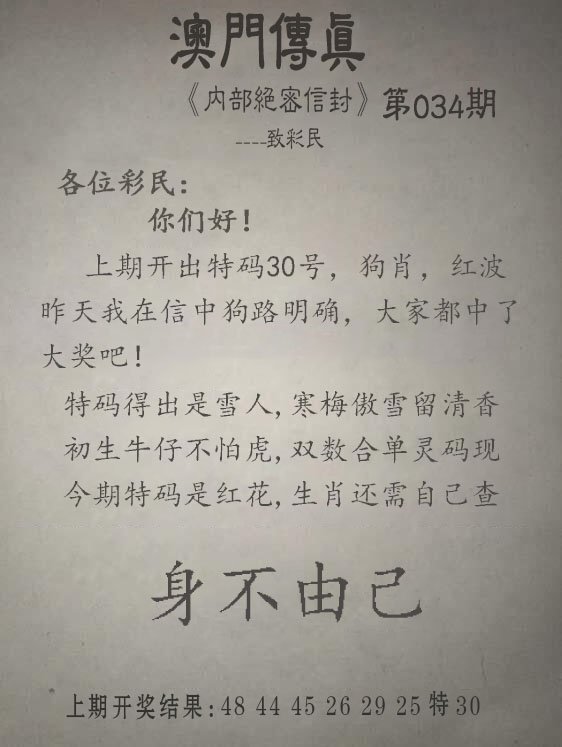 澳門傳眞
《内部絕密信封》第034期
----致彩民
各位彩民：
你们好！
上期开出特码30号，狗肖，红波
昨天我在信中狗路明确，大家都中了
大奖吧！
特码得出是雪人,寒梅傲雪留清香
初生牛仔不怕虎,双数合单灵码现
今期特码是红花,生肖还需自己查
身不由己
上期开奖结果:48 44 45 26 29 25 特 30